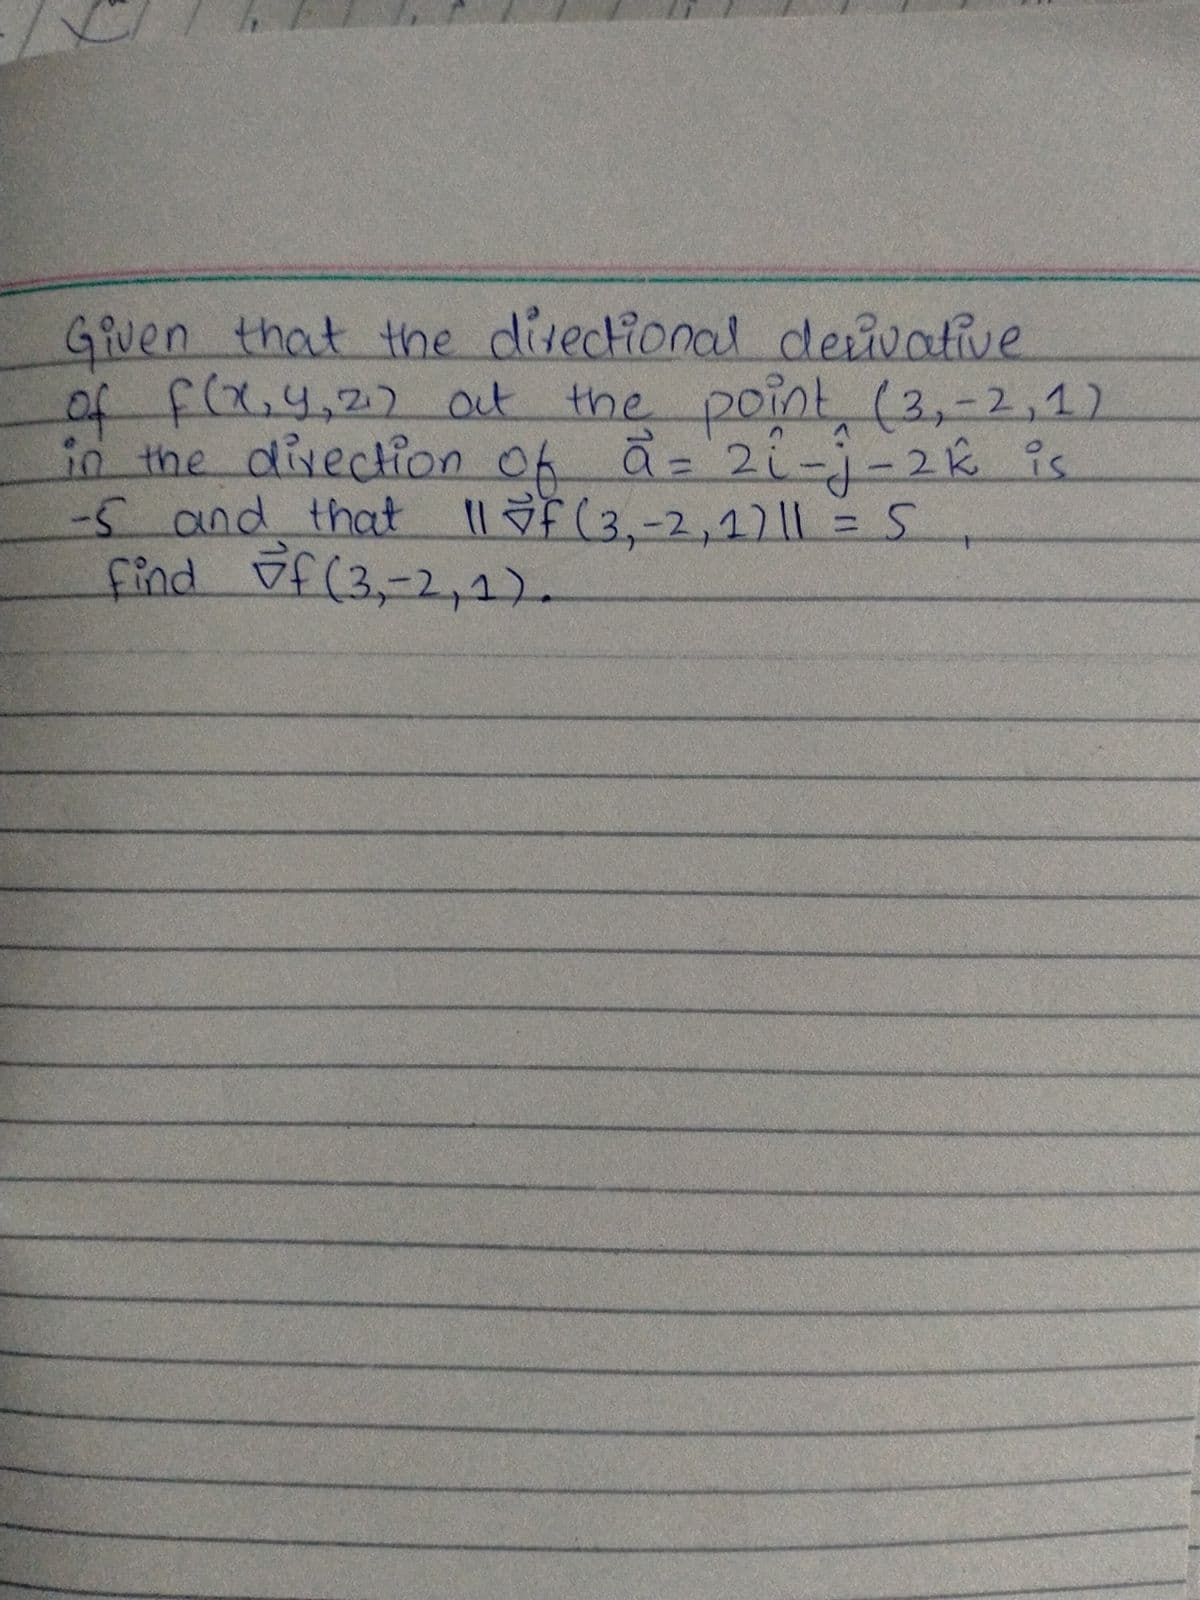 Given that the directional derivative
of f(x,y,z) at the point (3,-2,1)
in the direction of a⃗ = 2î-ĵ-2k̂ is
-5 and that ||∇⃗f(3,-2,1)|| = 5,
find ∇⃗f(3,-2,1).